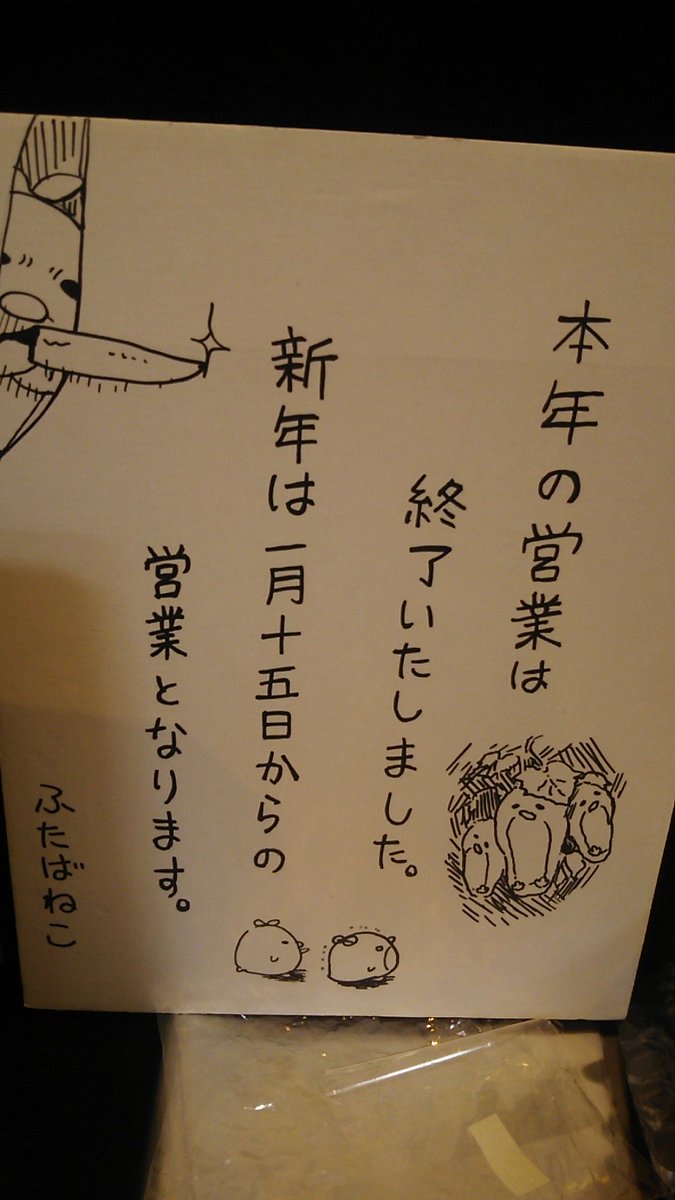 本年の営業は
終了いたしました。
新年は一月十五日からの
営業となります。
ふたばねこ